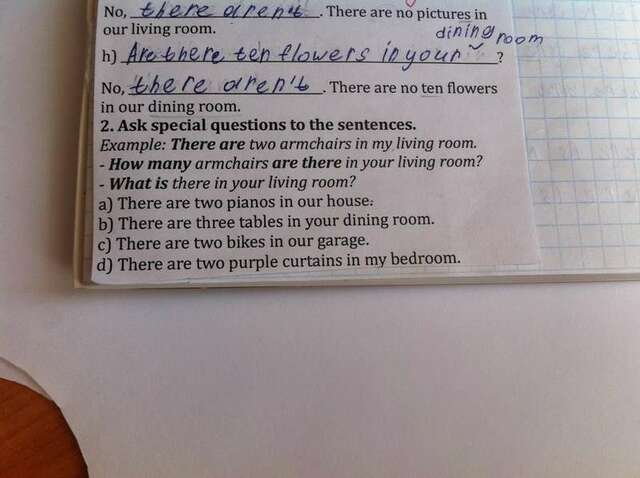 No, there aren't. There are no pictures in
our living room.
dining room
h) Are there ten flowers in your ?
No, there aren't. There are no ten flowers
in our dining room.
2. Ask special questions to the sentences.
Example: There are two armchairs in my living room.
- How many armchairs are there in your living room?
- What is there in your living room?
a) There are two pianos in our house.
b) There are three tables in your dining room.
c) There are two bikes in our garage.
d) There are two purple curtains in my bedroom.